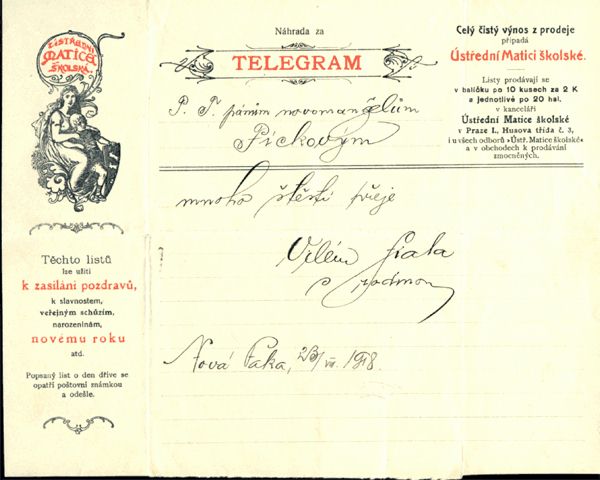 ÚSTŘEDNÍ
MATICE
ŠKOLSKÁ.
Těchto listů
lze užíti
k zasílání pozdravů,
k slavnostem,
veřejným schůzím,
narozeninám,
novému roku
atd.
Popsaný list o den dříve se
opatří poštovní známkou
a odešle.
Náhrada za
TELEGRAM
P. T. pánům novomanželům
Pickovým
mnoho štěstí přeje
Vilém Fiala
s rodinou
Nová Paka, 1918.
Celý čistý výnos z prodeje
připadá
Ústřední Matici školské.
Listy prodávají se
v balíčku po 10 kusech za 2 K
a jednotlivě po 20 hal.
v kanceláři
Ústřední Matice školské
v Praze I., Husova třída č. 3,
i u všech odborů »Ústř. Matice školské«
a v obchodech k prodávání
zmocněných.